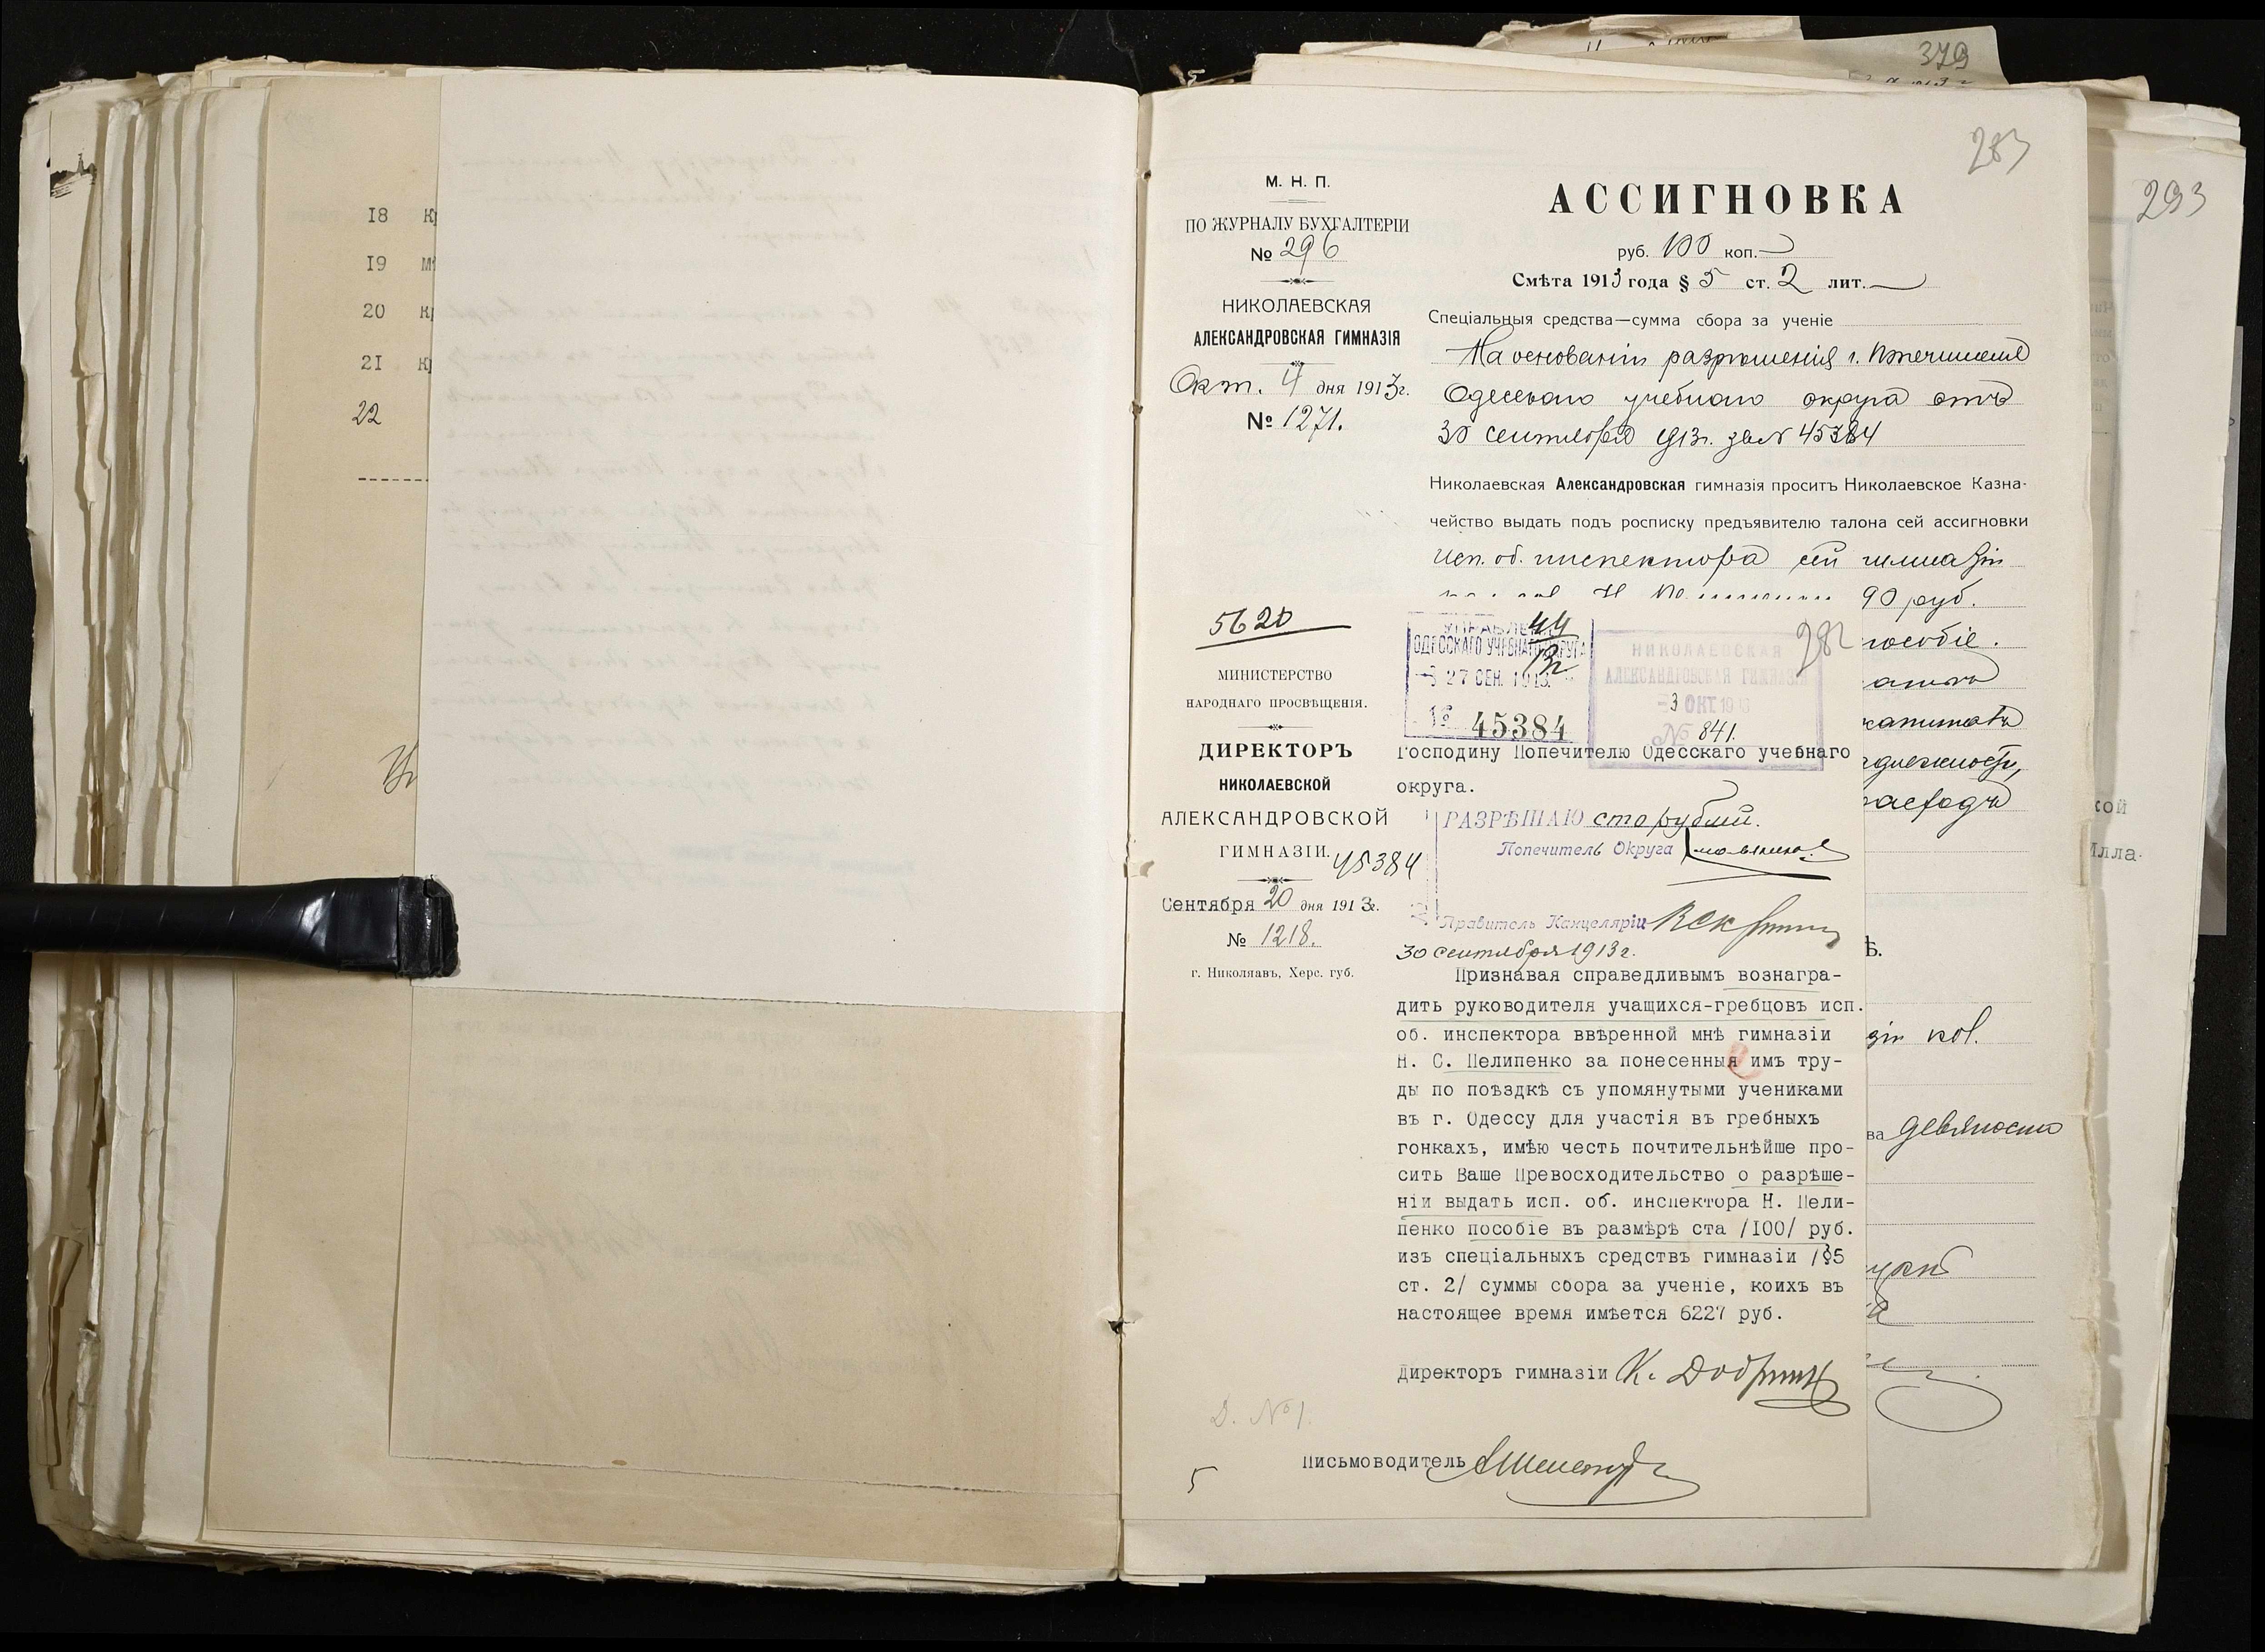 379
293
283
М. Н. П.
ПО ЖУРНАЛУ БУХГАЛТЕРІИ
№ 296
НИКОЛАЕВСКАЯ
АЛЕКСАНДРОВСКАЯ ГИМНАЗІЯ
Окт. 4 дня 1913г.
№ 1271.
АССИГНОВКА
руб. 100 коп. —
Смѣта 1913 года § 5 ст. 2 лит. —
Спеціальныя средства—сумма сбора за ученіе
На основаніи разрѣшенія г. Попечителя
Одесскаго учебнаго округа отъ
30 сентября 1913г. за № 45384
Николаевская Александровская гимназія проситъ Николаевское Казна-
чейство выдать подъ росписку предъявителю талона сей ассигновки
исп. об. инспектора сей гимназіи
90 руб.
пособіе.
расходъ
зіи кол.
ва девяносто
кой
18
19
20
21
22
5620
МИНИСТЕРСТВО
НАРОДНАГО ПРОСВѢЩЕНІЯ.
ДИРЕКТОРЪ
НИКОЛАЕВСКОЙ
АЛЕКСАНДРОВСКОЙ
ГИМНАЗІИ.
45384
Сентября 20 дня 1913г.
№ 1218.
г. Николяавъ, Херс. губ.
УПРАВЛЕНІЕ
ОДЕССКАГО УЧЕБНАГО ОКРУГА
27 СЕН. 1913
№ 45384
НИКОЛАЕВСКАЯ
АЛЕКСАНДРОВСКАЯ ГИМНАЗІЯ
-3 ОКТ 1913
№ 841.
282
Господину Попечителю Одесскаго учебнаго
округа.
РАЗРѢШАЮ сто рублей.
Попечитель Округа
Правитель Канцеляріи
30 сентября 1913г.
Признавая справедливымъ вознагра-
дить руководителя учащихся-гребцовъ исп.
об. инспектора ввѣренной мнѣ гимназіи
Н. С. Пелипенко за понесенныя имъ тру-
ды по поѣздкѣ съ упомянутыми учениками
въ г. Одессу для участія въ гребныхъ
гонкахъ, имѣю честь почтительнѣйше про-
сить Ваше Превосходительство о разрѣше-
ніи выдать исп. об. инспектора Н. Пели-
пенко пособіе въ размѣрѣ ста /100/ руб.
изъ спеціальныхъ средствъ гимназіи /§5
ст. 2/ суммы сбора за ученіе, коихъ въ
настоящее время имѣется 6227 руб.
Директоръ гимназіи К. Добрин
Д. №1.
Письмоводитель
5